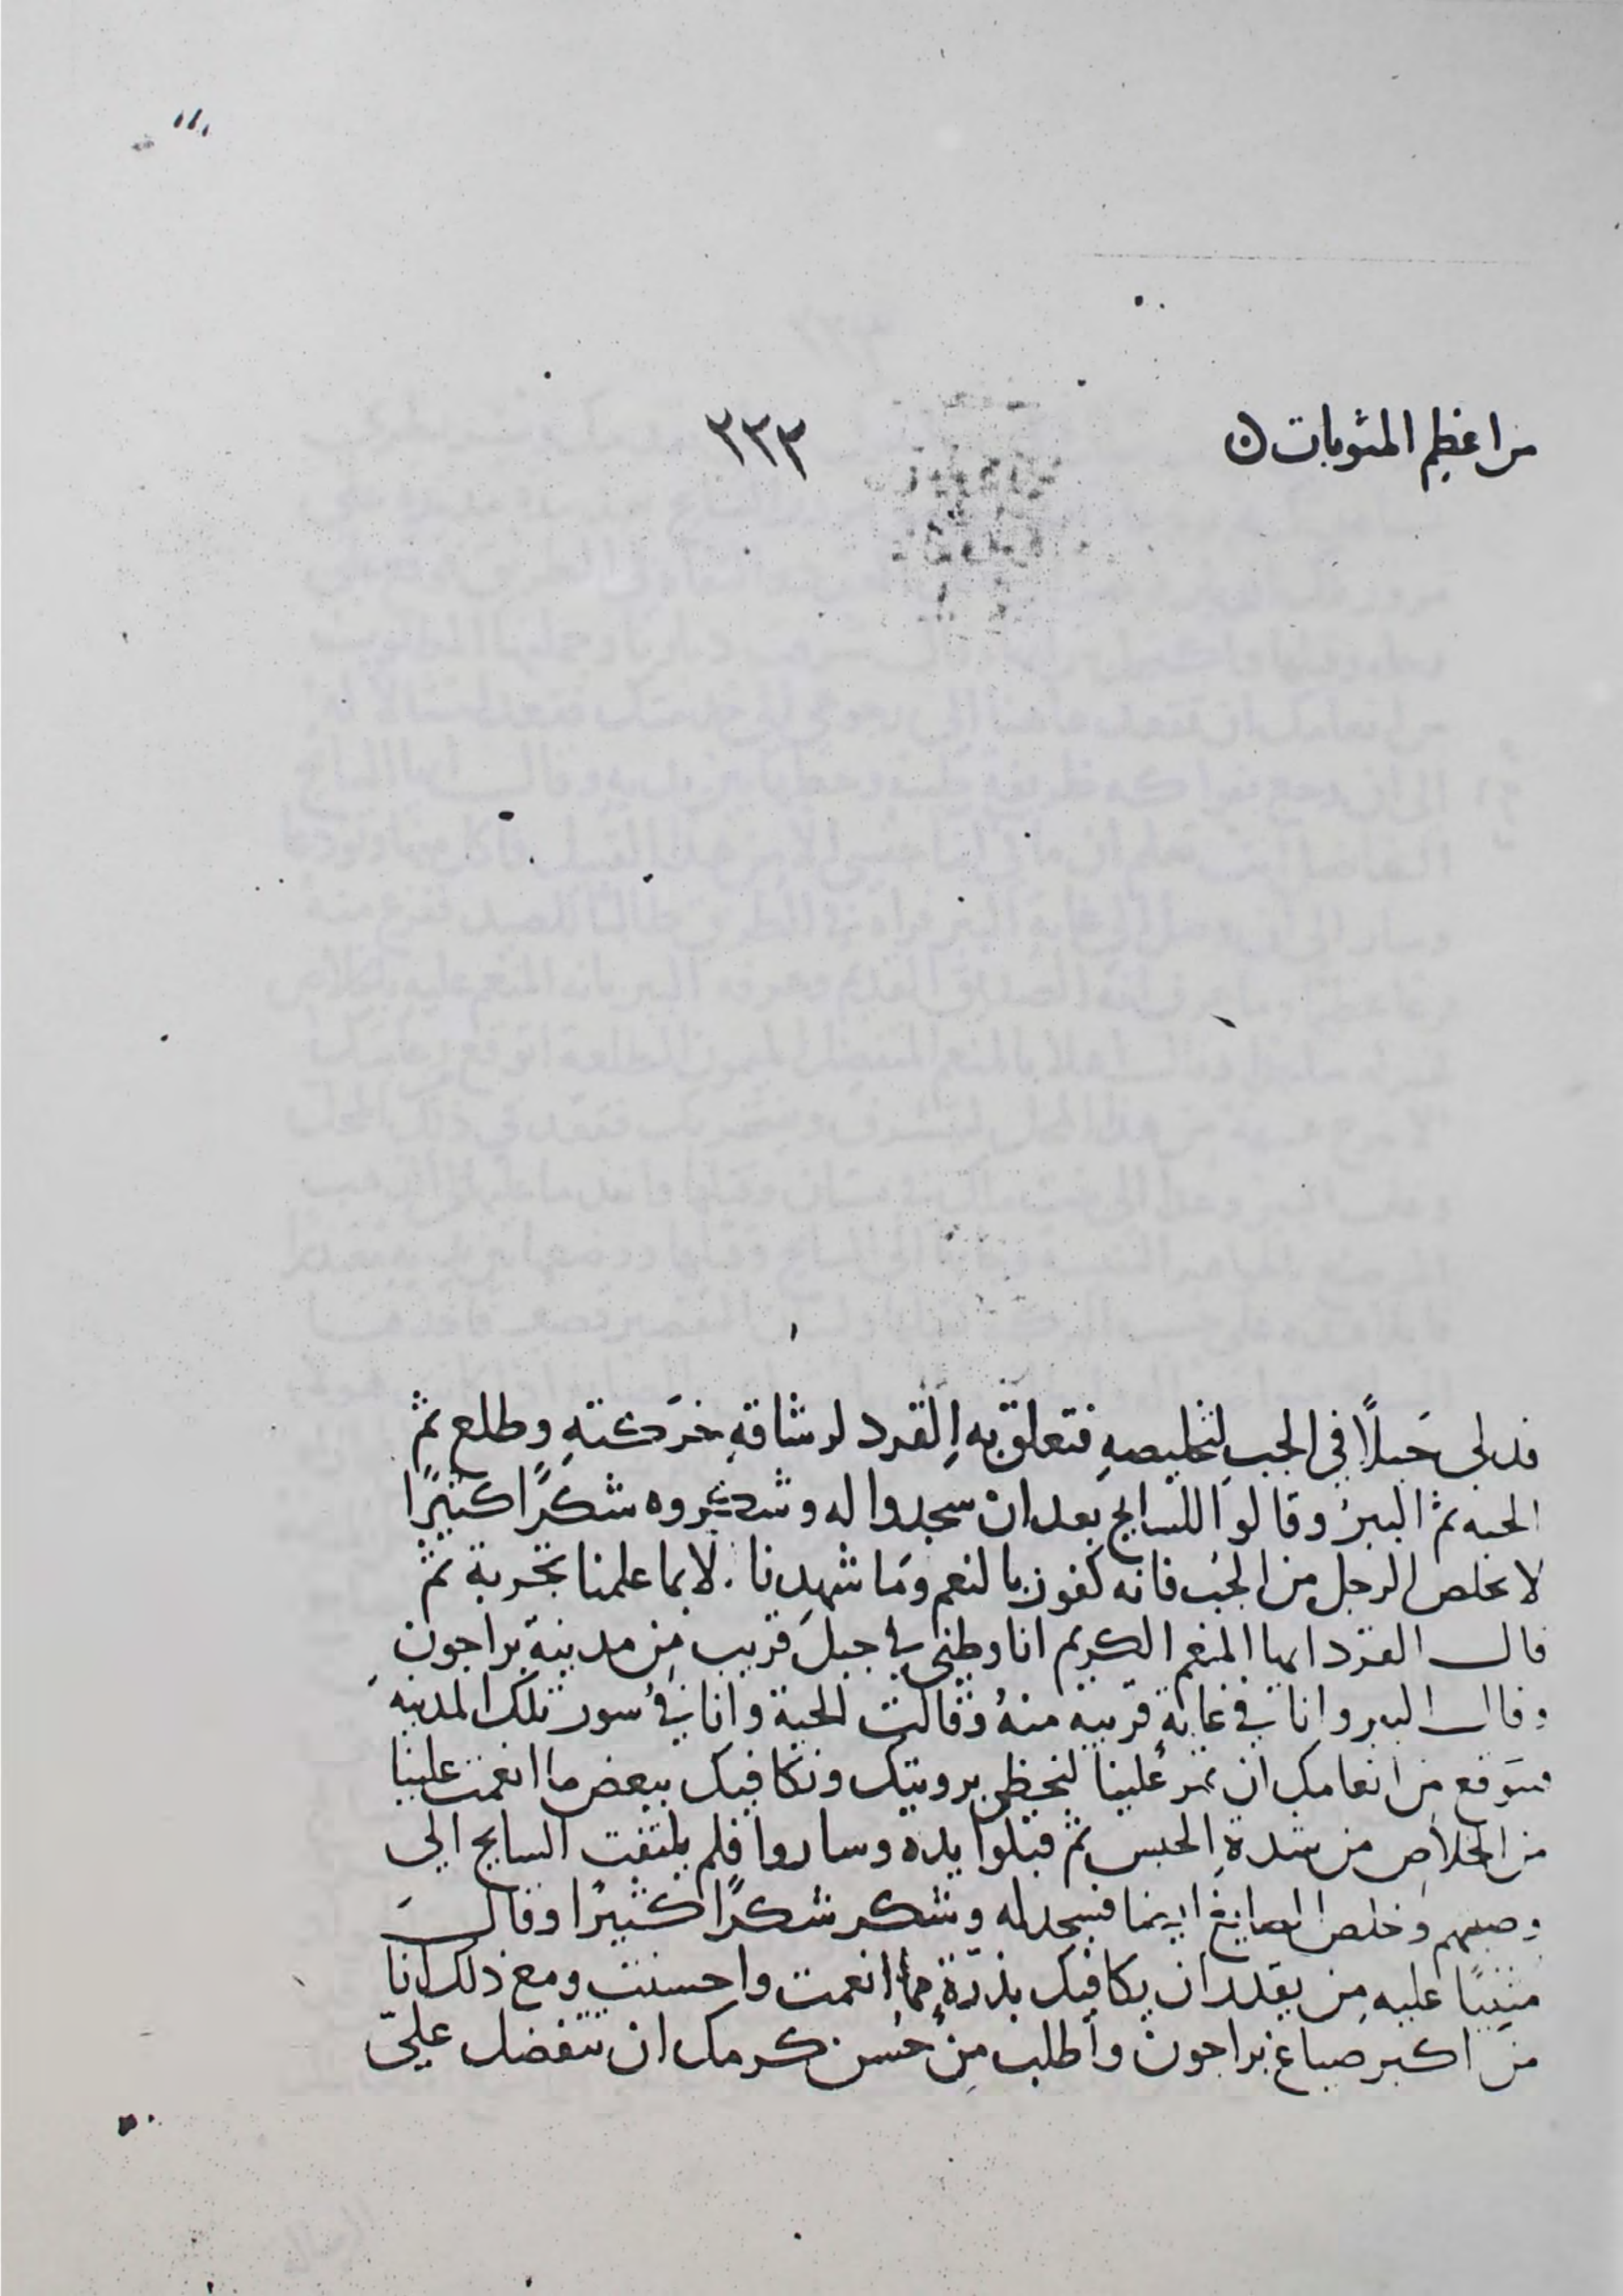 من اعظم المثوبات ه
٢٣٣
فدلى حَبلاً في الجبِ لتخليصهِ فتعلق به القرد لرشاقةِ حَركتهِ وطلع ثم
الحيه ثم الببرُ وقالوا للسايح بعد ان سجدوا له وشكروه شكرًا كثيرًا
لا تخلص الرجل من الجب فانه كفور بالنعم ومَا شهدنا الا بما علمنا تجربة ثم
قال القرد ايها المنعم الكريم انا وطني في جبل قريب من مدينة براجون
وقال الببر وانا في غابةٍ قريبه منهُ وقالت الحية وانا في سور تلك المدينه
فنتوقع من انعامك ان تمر علينا لنحظى برويتك ونكافيك ببعض ما انعمت علينا
من الخلاصِ من شدةِ الحبس ثم قبلوا يده وساروا فلم يلتفت السايح الى
وصيهم وخلص الصايغ ايضا فسجد له وشكر شكرًا كثيرًا وقال
مثنيًا عليه من يقدر ان يكافيك بذرّةٍ مما انعمت واحسنت ومع ذلك انا
من اكبر صياغ براجون واطلب من حُسن كرمك ان تتفضل عليّ